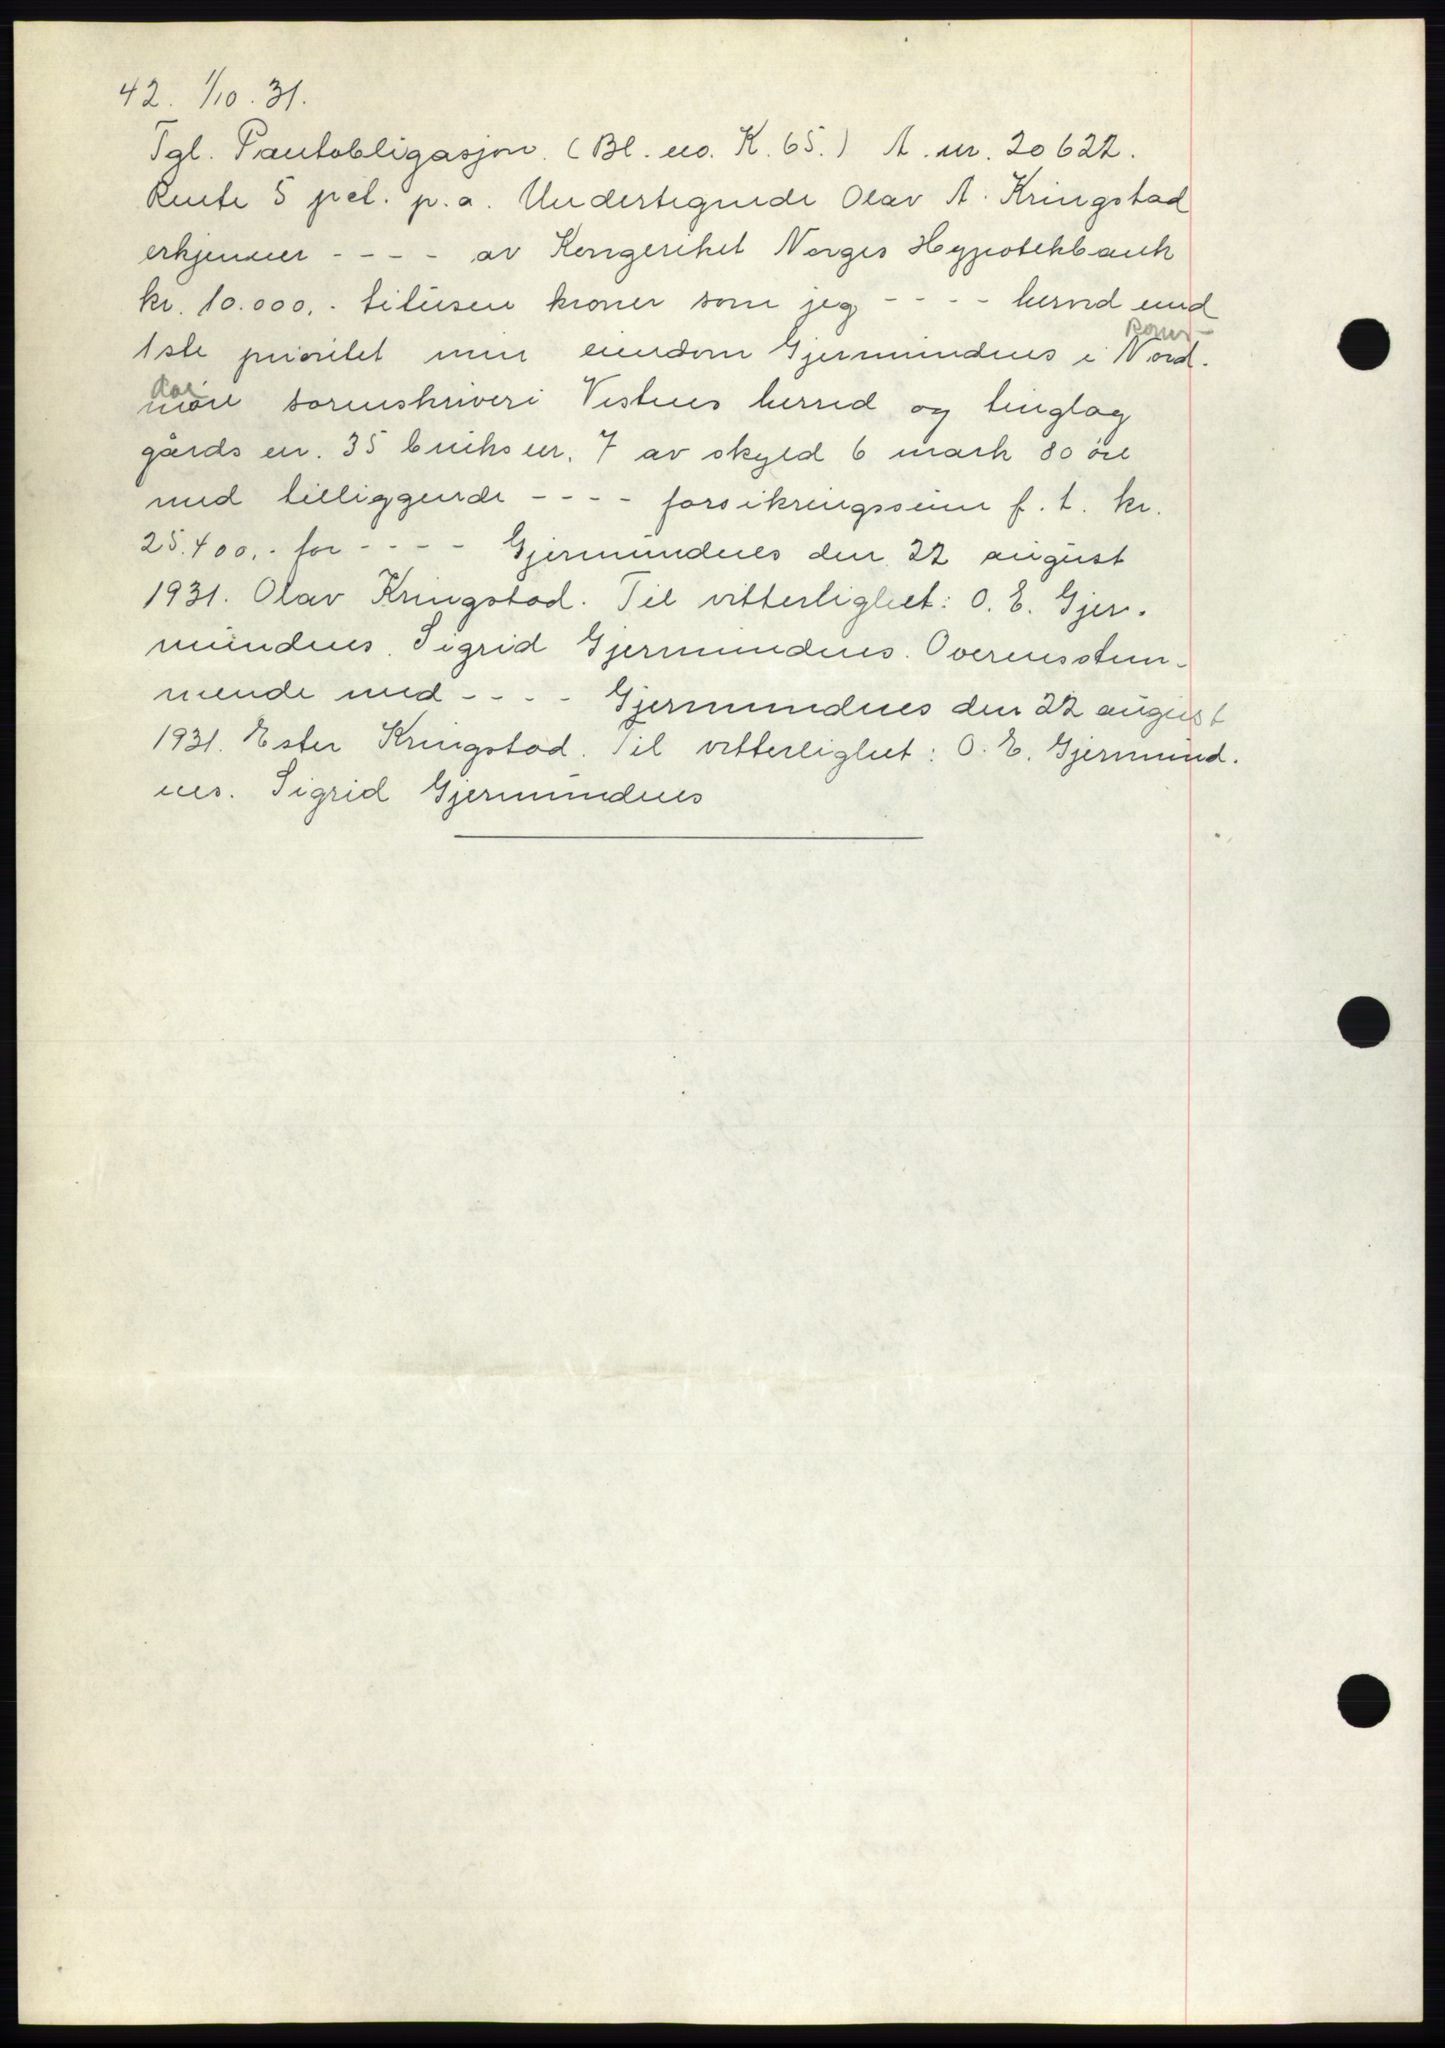 42. 1/10. 31.
Tgl. Pantobligasjon. (Bl. no. K. 65.) A. nr. 20622.
Rente 5 pct. p.a. Undertegnede Olav A. Kringstad
erkjenner - - - - av Kongeriket Norges Hypotekbank
kr. 10.000.- titusen kroner som jeg - - - - herved med
Roms-
1ste prioritet min eiendom Gjermundnes i Nord-
dal
møre sorenskriveri Vestnes herred og tinglag
gårds nr. 35 bruks nr. 7 av skyld 6 mark 80 øre
med tilliggende - - - - forsikringssum f. t. kr.
25.400.- for - - - - Gjermundnes den 22 august
1931. Olav Kringstad. Til vitterlighet: O. E. Gjer-
mundnes. Sigrid Gjermundnes. Overensstem-
mende med - - - - Gjermundnes den 22 august
1931. Ester Kringstad. Til vitterlighet: O. E. Gjermund-
nes. Sigrid Gjermundnes